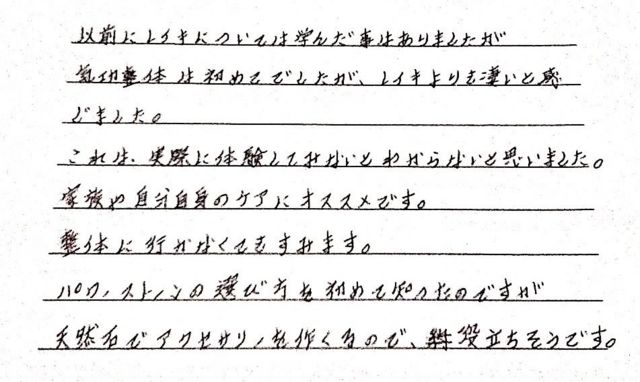 以前にレイキについては学んだ事はありましたが
気功整体は初めてでしたが、レイキよりも凄いと感
じました。
これは、実際に体験してみないとわからないと思いました。
家族や自分自身のケアにオススメです。
整体に行かなくてもすみます。
パワーストーンの選び方を初めて知ったのですが
天然石でアクセサリーを作くるので、役立ちそうです。